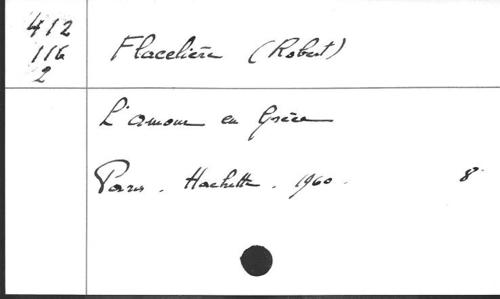 412
116
2
Flacelière (Robert)
L'amour en Grèce
Paris. Hachette. 1960. 8°